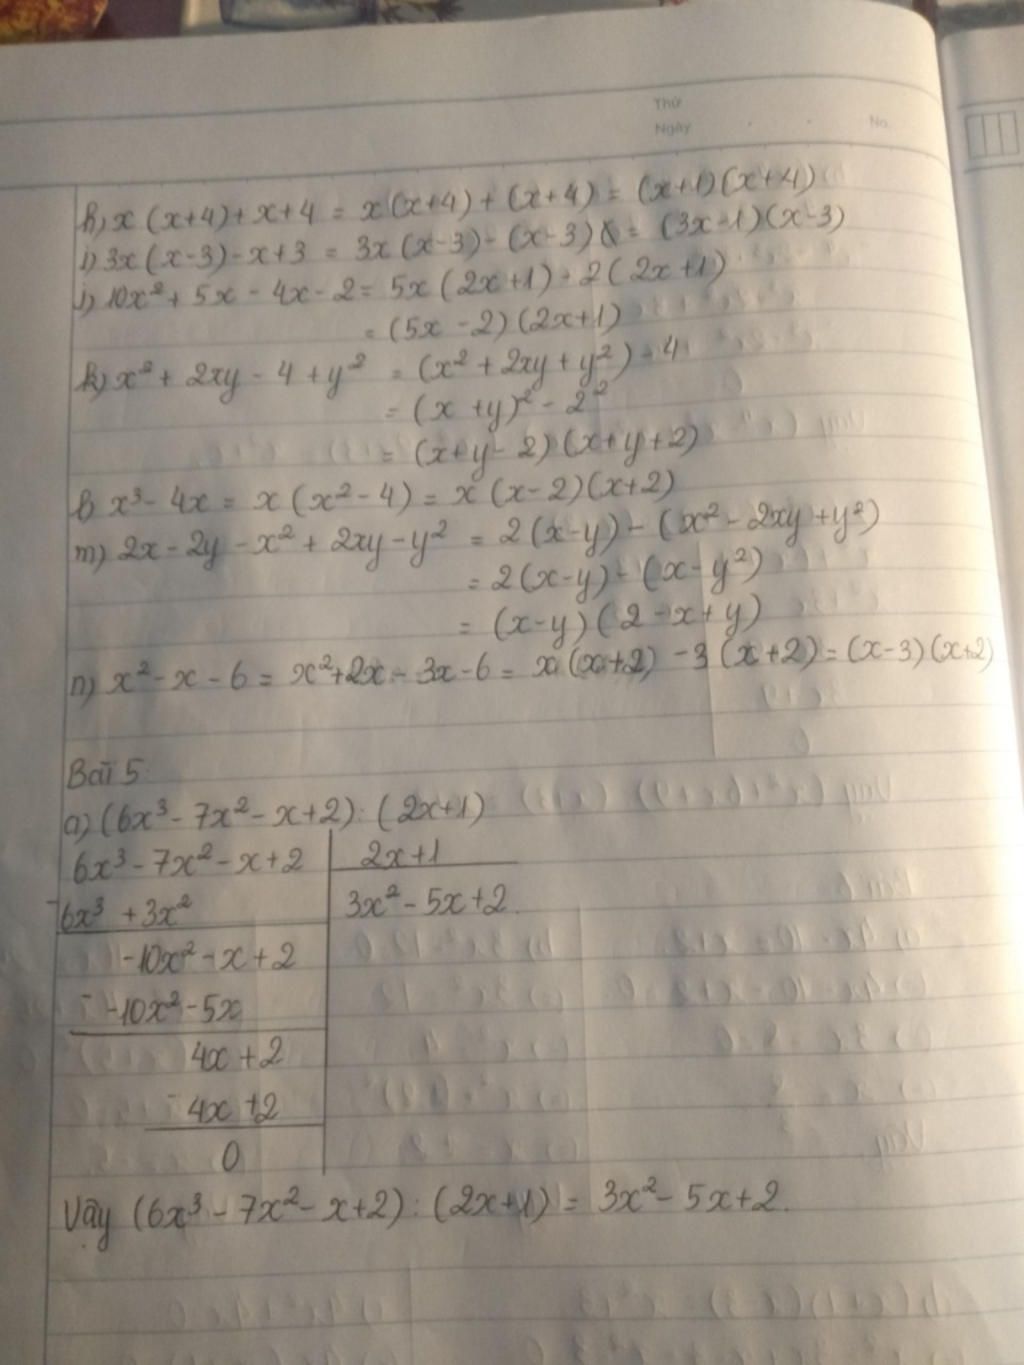 Thứ
Ngày
No.
h) x(x+4)+x+4 = x(x+4)+(x+4) = (x+1)(x+4)
i) 3x(x-3)-x+3 = 3x(x-3)-(x-3) = (3x-1)(x-3)
j) 10x²+5x-4x-2 = 5x(2x+1)-2(2x+1)
= (5x-2)(2x+1)
k) x²+2xy-4+y² = (x²+2xy+y²)-4
= (x+y)²-2²
= (x+y-2)(x+y+2)
l) x³-4x = x(x²-4) = x(x-2)(x+2)
m) 2x-2y-x²+2xy-y² = 2(x-y)-(x²-2xy+y²)
= 2(x-y)-(x-y²)
= (x-y)(2-x+y)
n) x²-x-6 = x²+2x-3x-6 = x(x+2)-3(x+2) = (x-3)(x+2)
Bài 5:
a) (6x³-7x²-x+2):(2x+1)
6x³-7x²-x+2 | 2x+1
-6x³+3x² | 3x²-5x+2.
-10x²-x+2
- -10x²-5x
4x+2
-4x+2
0
Vậy (6x³-7x²-x+2):(2x+1) = 3x²-5x+2.